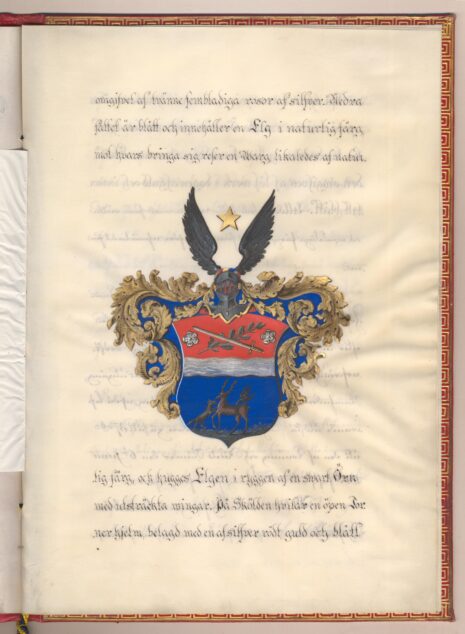 omgifvet af tvänne fembladiga rosor af silfver. Nedra
fältet är blått och innehåller en Elg i naturlig färg,
mot hvars bringa sig reser en Warg likaledes af natur-
lig färg, och hugges Elgen i ryggen af en svart Örn
med utsträckta wingar. På Skölden hvilar en öpen Tor-
nerhjelm, belagd med en af silfver rödt guld och blått